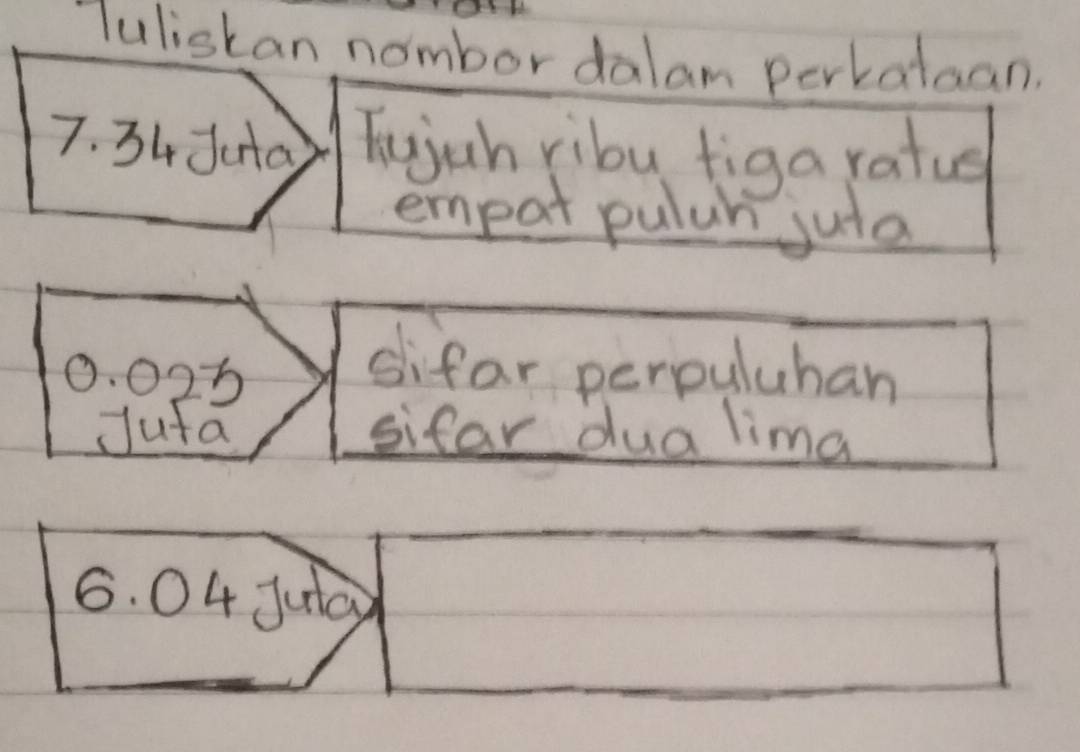 Tuliskan nombor dalam perkataan.
7.34 Juta
Tujuh ribu tiga ratus
empat puluh juta
0.025
Juta
Sifar perpuluhan
sifar dua lima
6.04 Juta